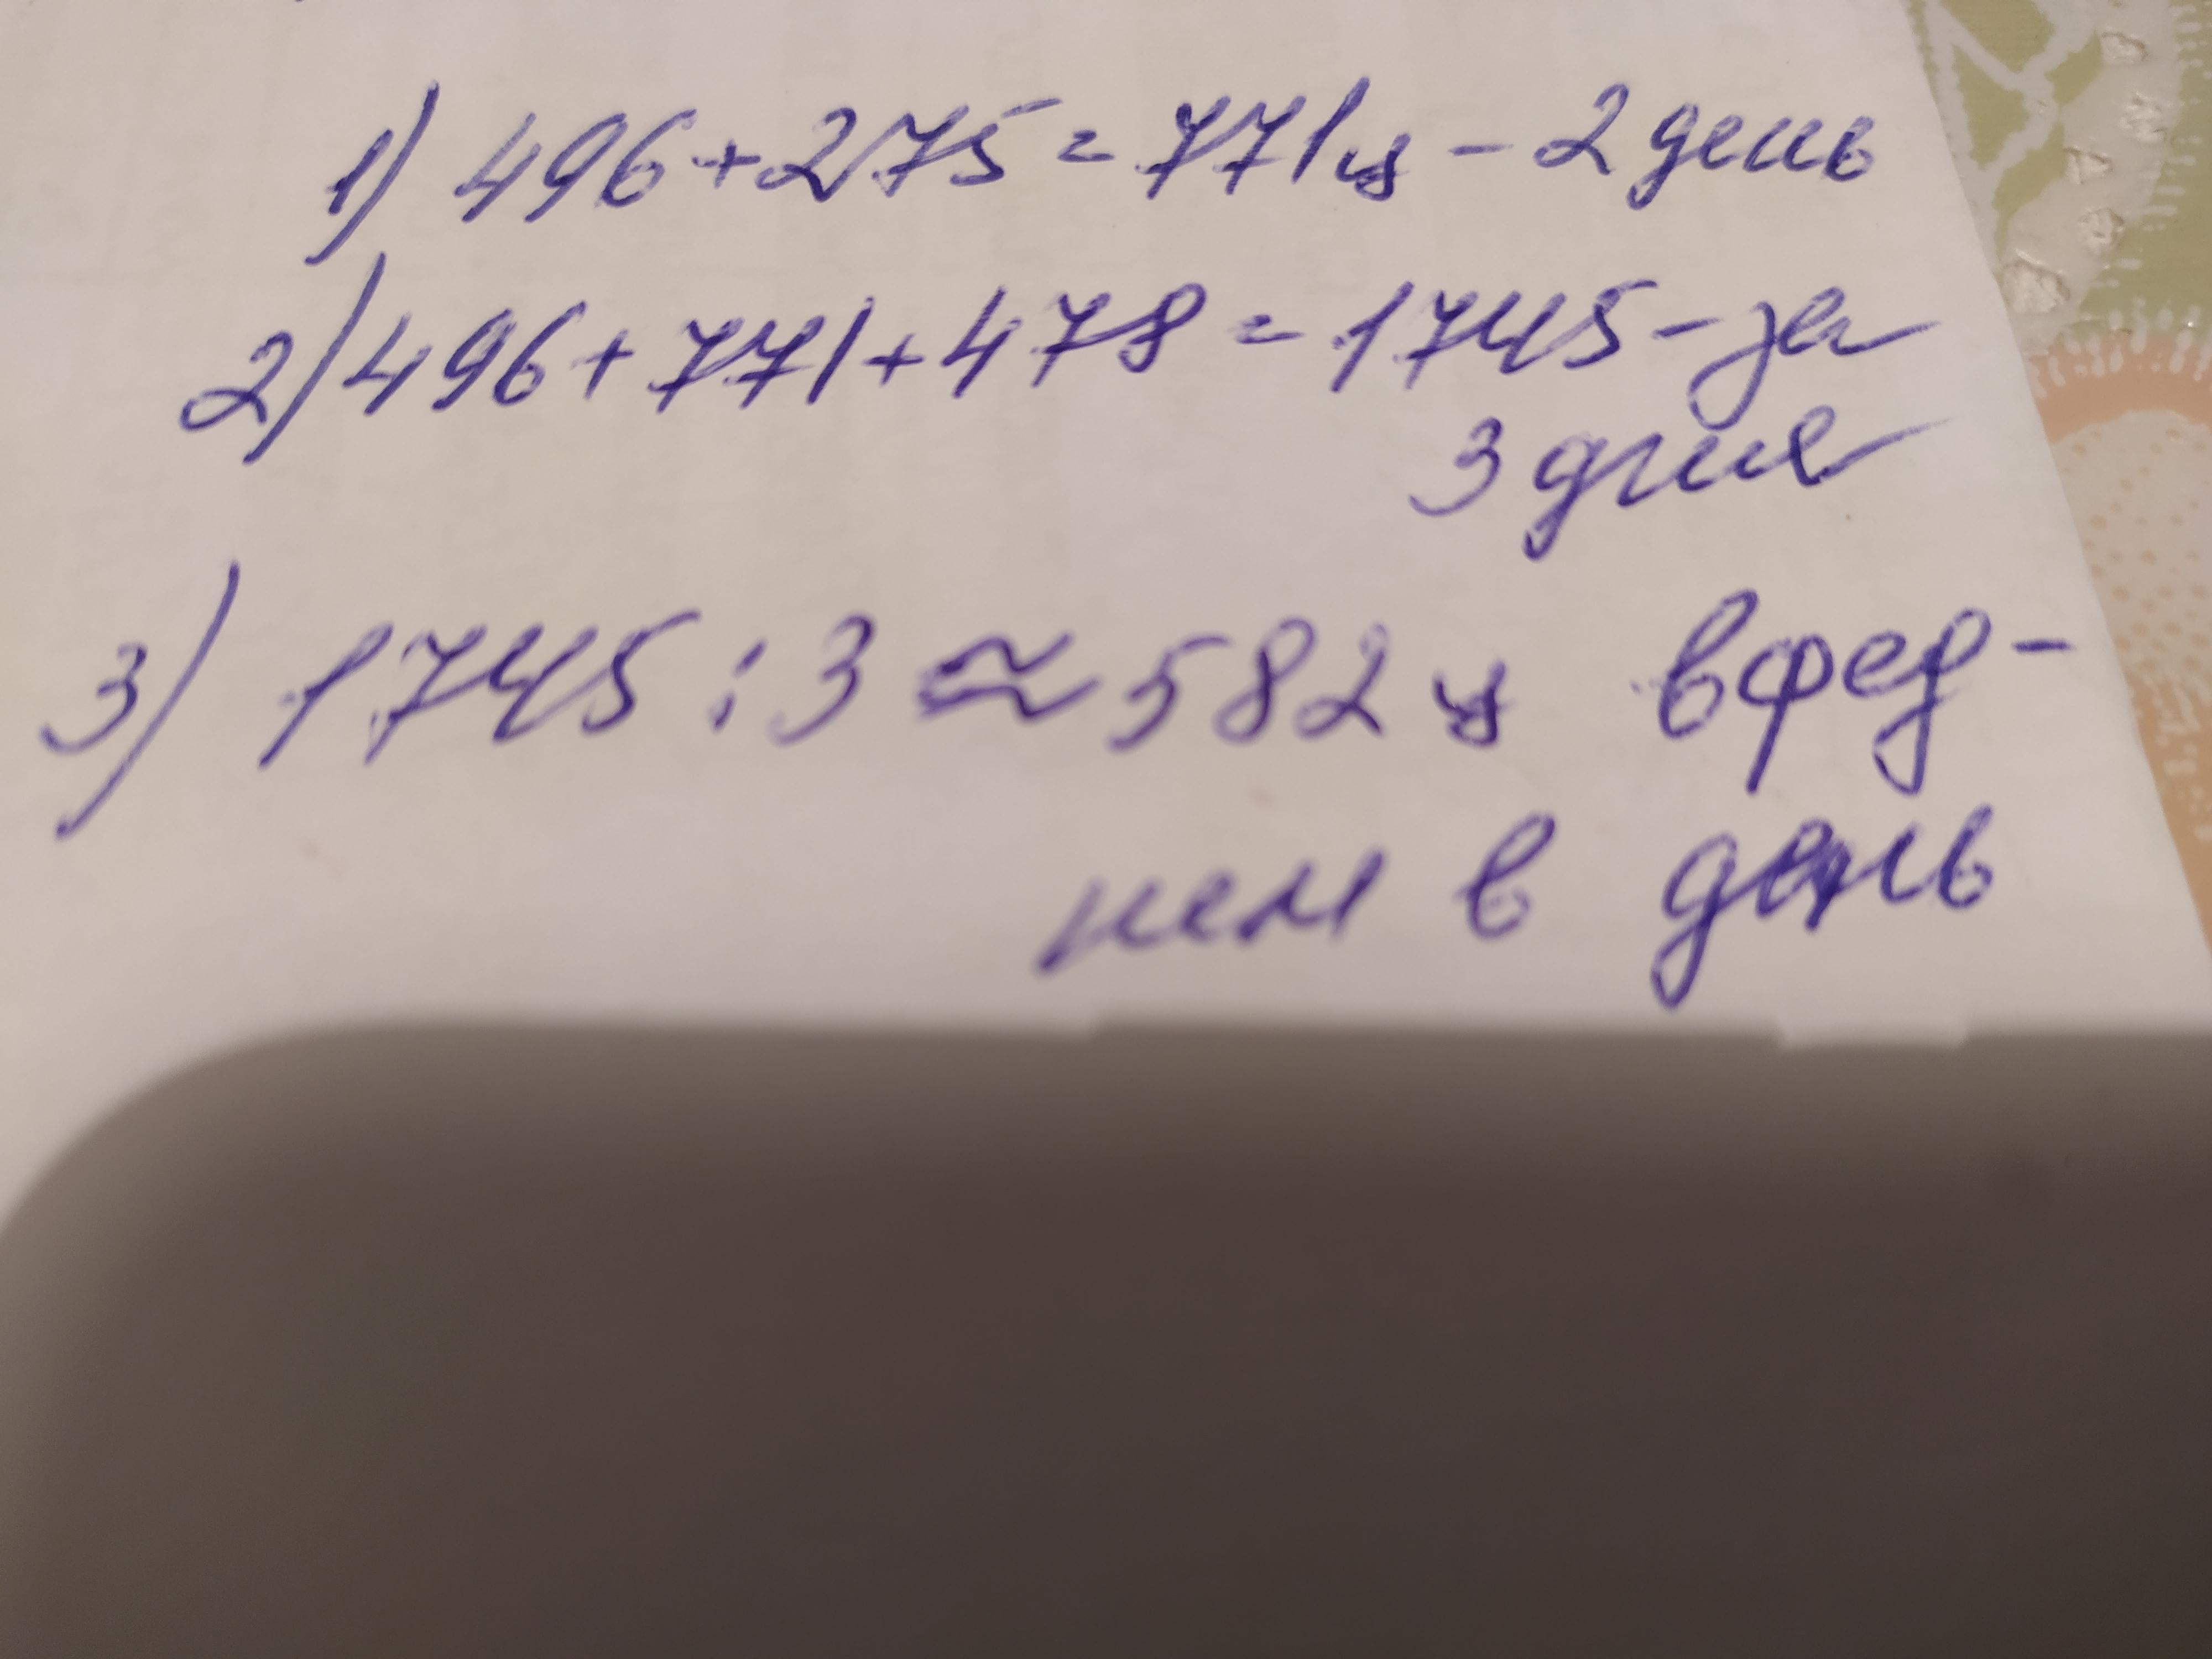 1) 496+275=771ц - 2 день
2) 496+771+478=1745 - за
3 дня
3) 1745 : 3 ≈ 582 ц в сред-
нем в день